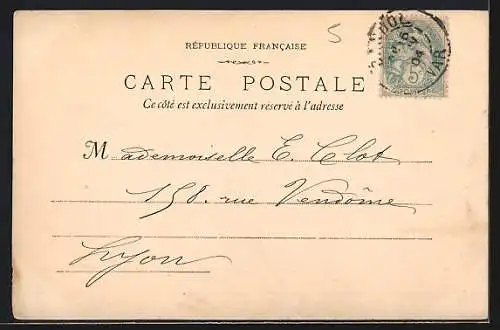 5
RÉPUBLIQUE FRANÇAISE
CARTE POSTALE
Ce côté est exclusivement réservé à l'adresse
Mademoiselle E. Clot
158. rue Vendôme
Lyon
VAR
04